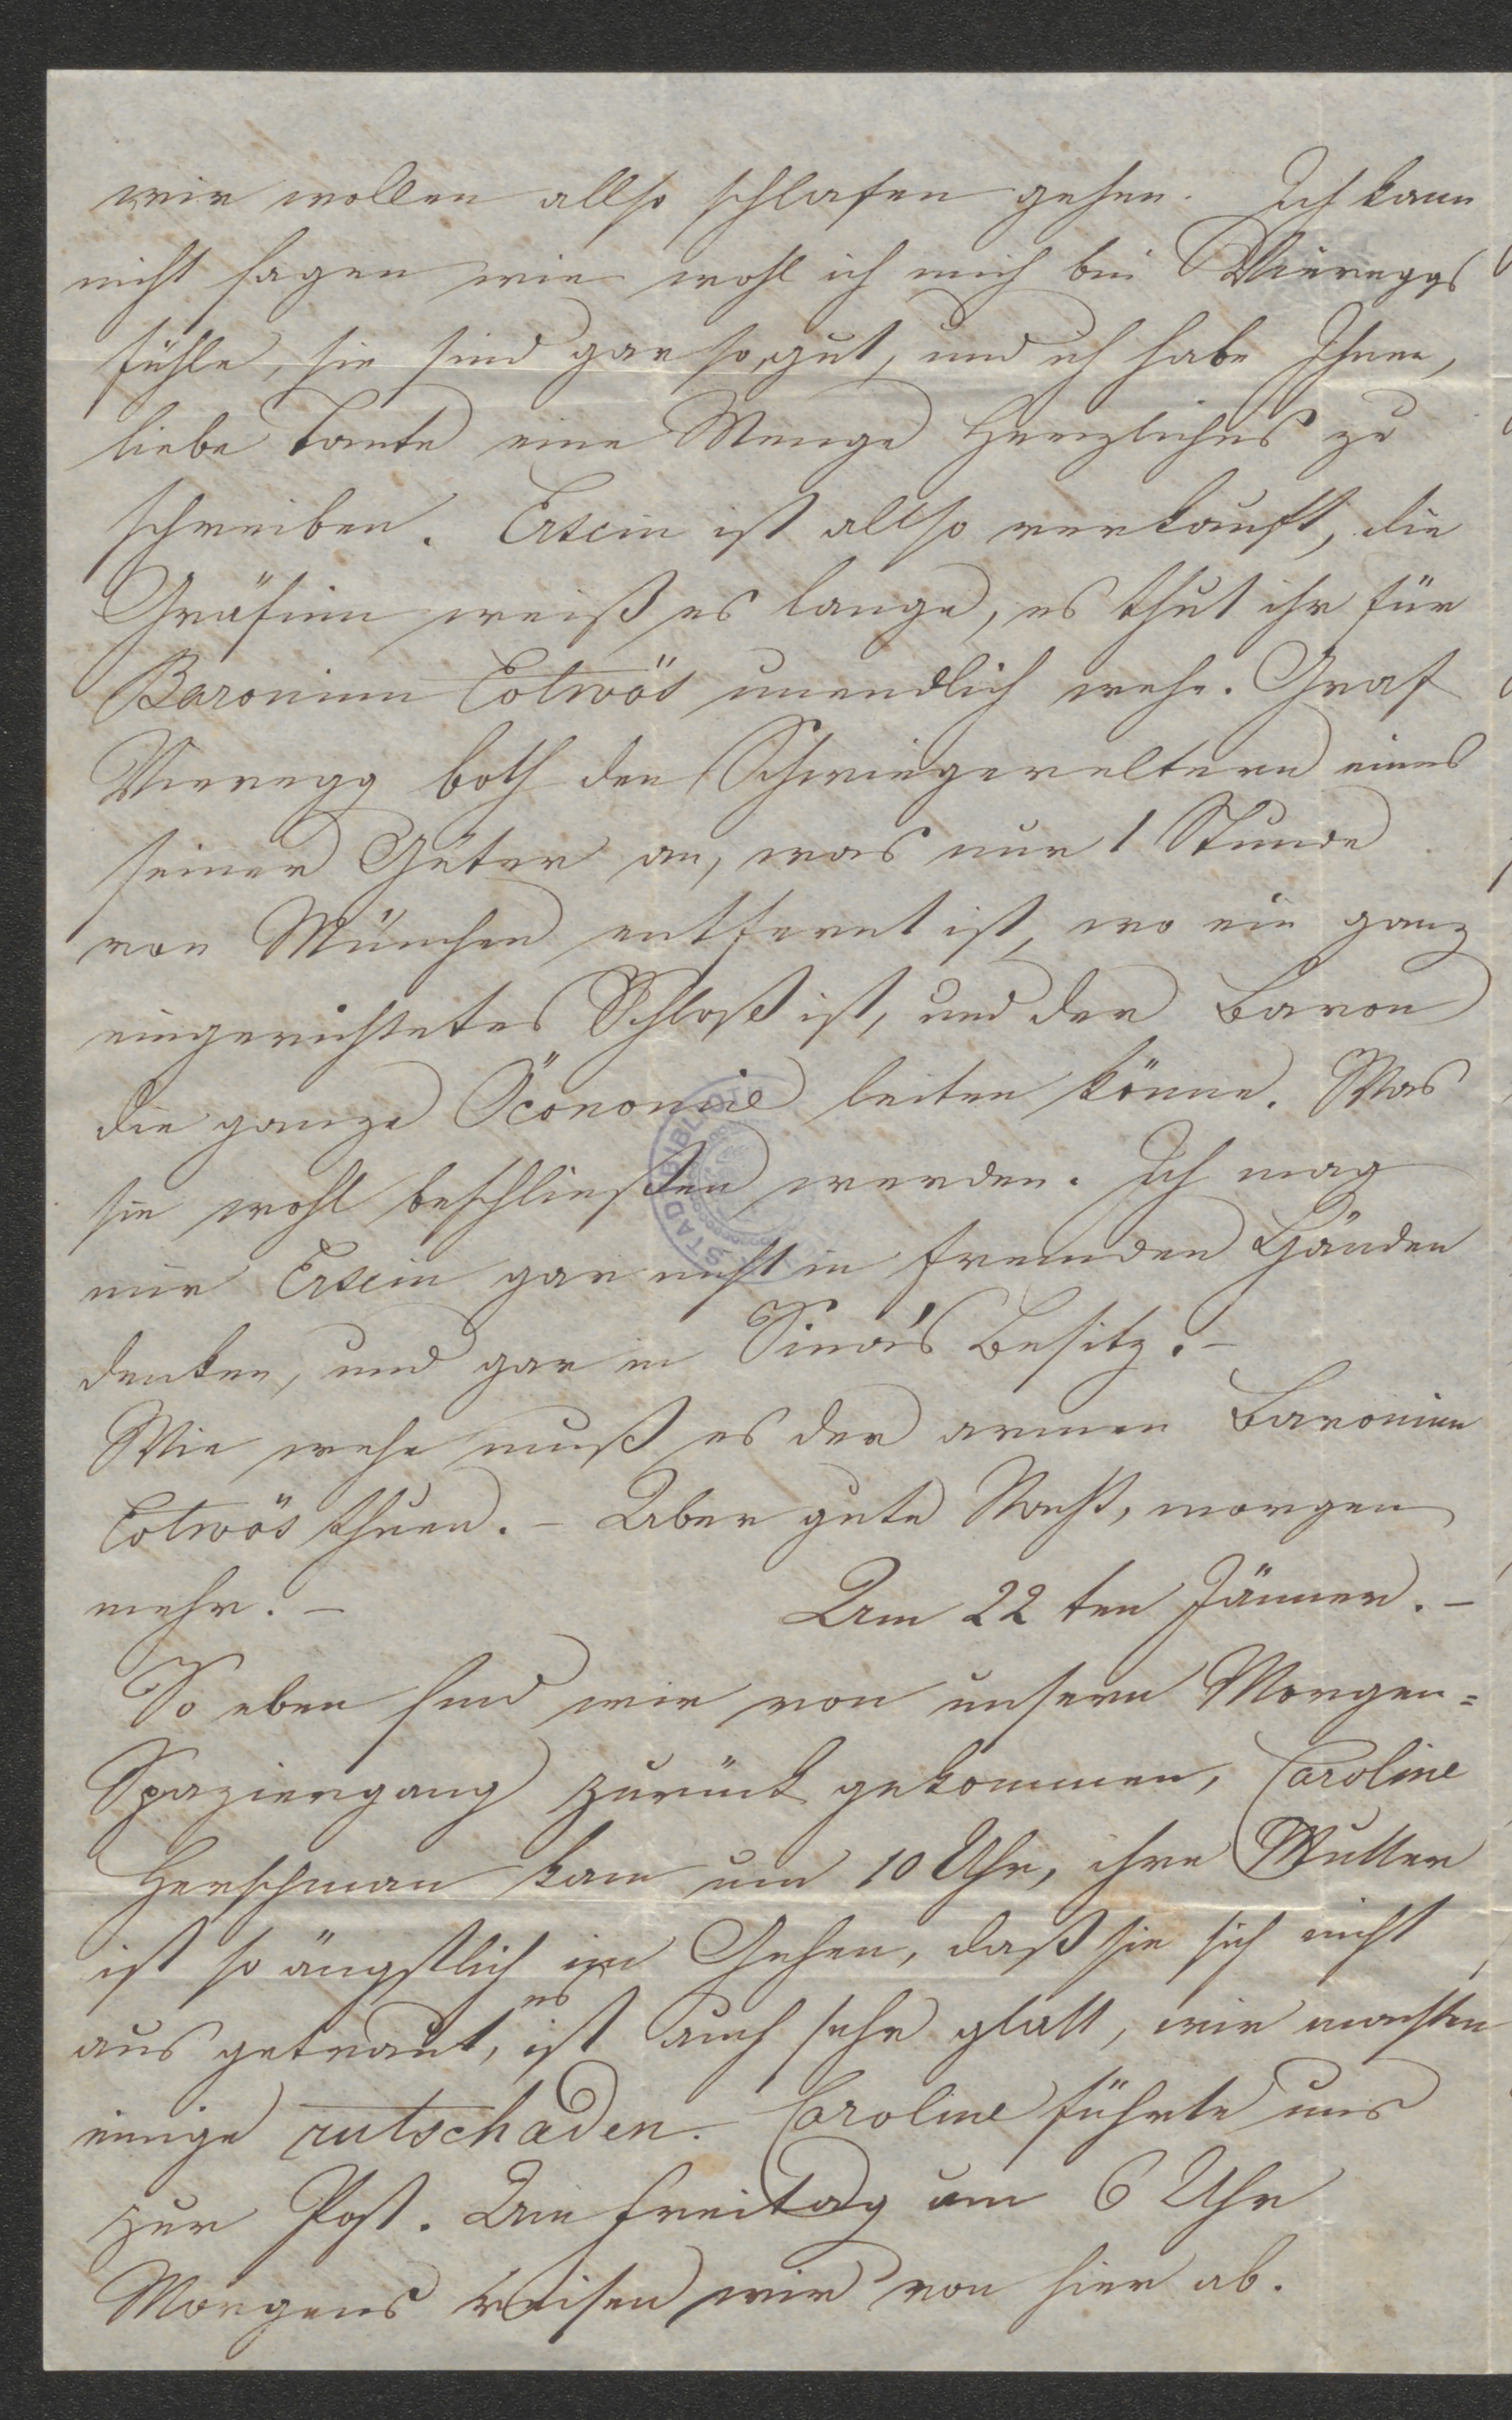 wir wollen allso schlafen gehen. Ich kann
nicht sagen wie wohl ich mich bei Viereggs
fühle, sie sind gar so gut, und ich habe Ihnen,
liebe Tante eine Menge Herzliches zu
schreiben. Ercsin ist allso verkauft, die
Gräfinn weiß es lange, es thut ihr für
Baroninn Eötwös unendlich wehe. Graf
Vieregg both den Schwiegereltern eines
seiner Güter an, was nur 1 Stunde
von München entfernt ist, wo ein ganz
eingerichtetes Schloß ist, und der Baron
die ganze Öconomie leiten könne. Was
sie wohl beschließen werden. Ich mag
mir Ercsin gar nicht in fremden Händen
denken, und gar in Sina's Besitz. –
Wie wehe muß es der armen Baroninn
Eötwös thuen. – Aber gute Nacht, morgen
mehr. – Am 22ten Jänner. –
So eben sind wir von unsern Morgen=
Spaziergang zurück gekommen, Caroline
Herschman kam um 10 Uhr, ihre Mutter
ist so ängstlich im Gehen, daß sie sich nicht
aus getraut, es ist auch sehr glatt, wir machten
einige rutschaden. Caroline führte uns
zur Post. Am Freitag um 6 Uhr
Morgens reisen wir von hier ab.
STADTBIBLIOTH